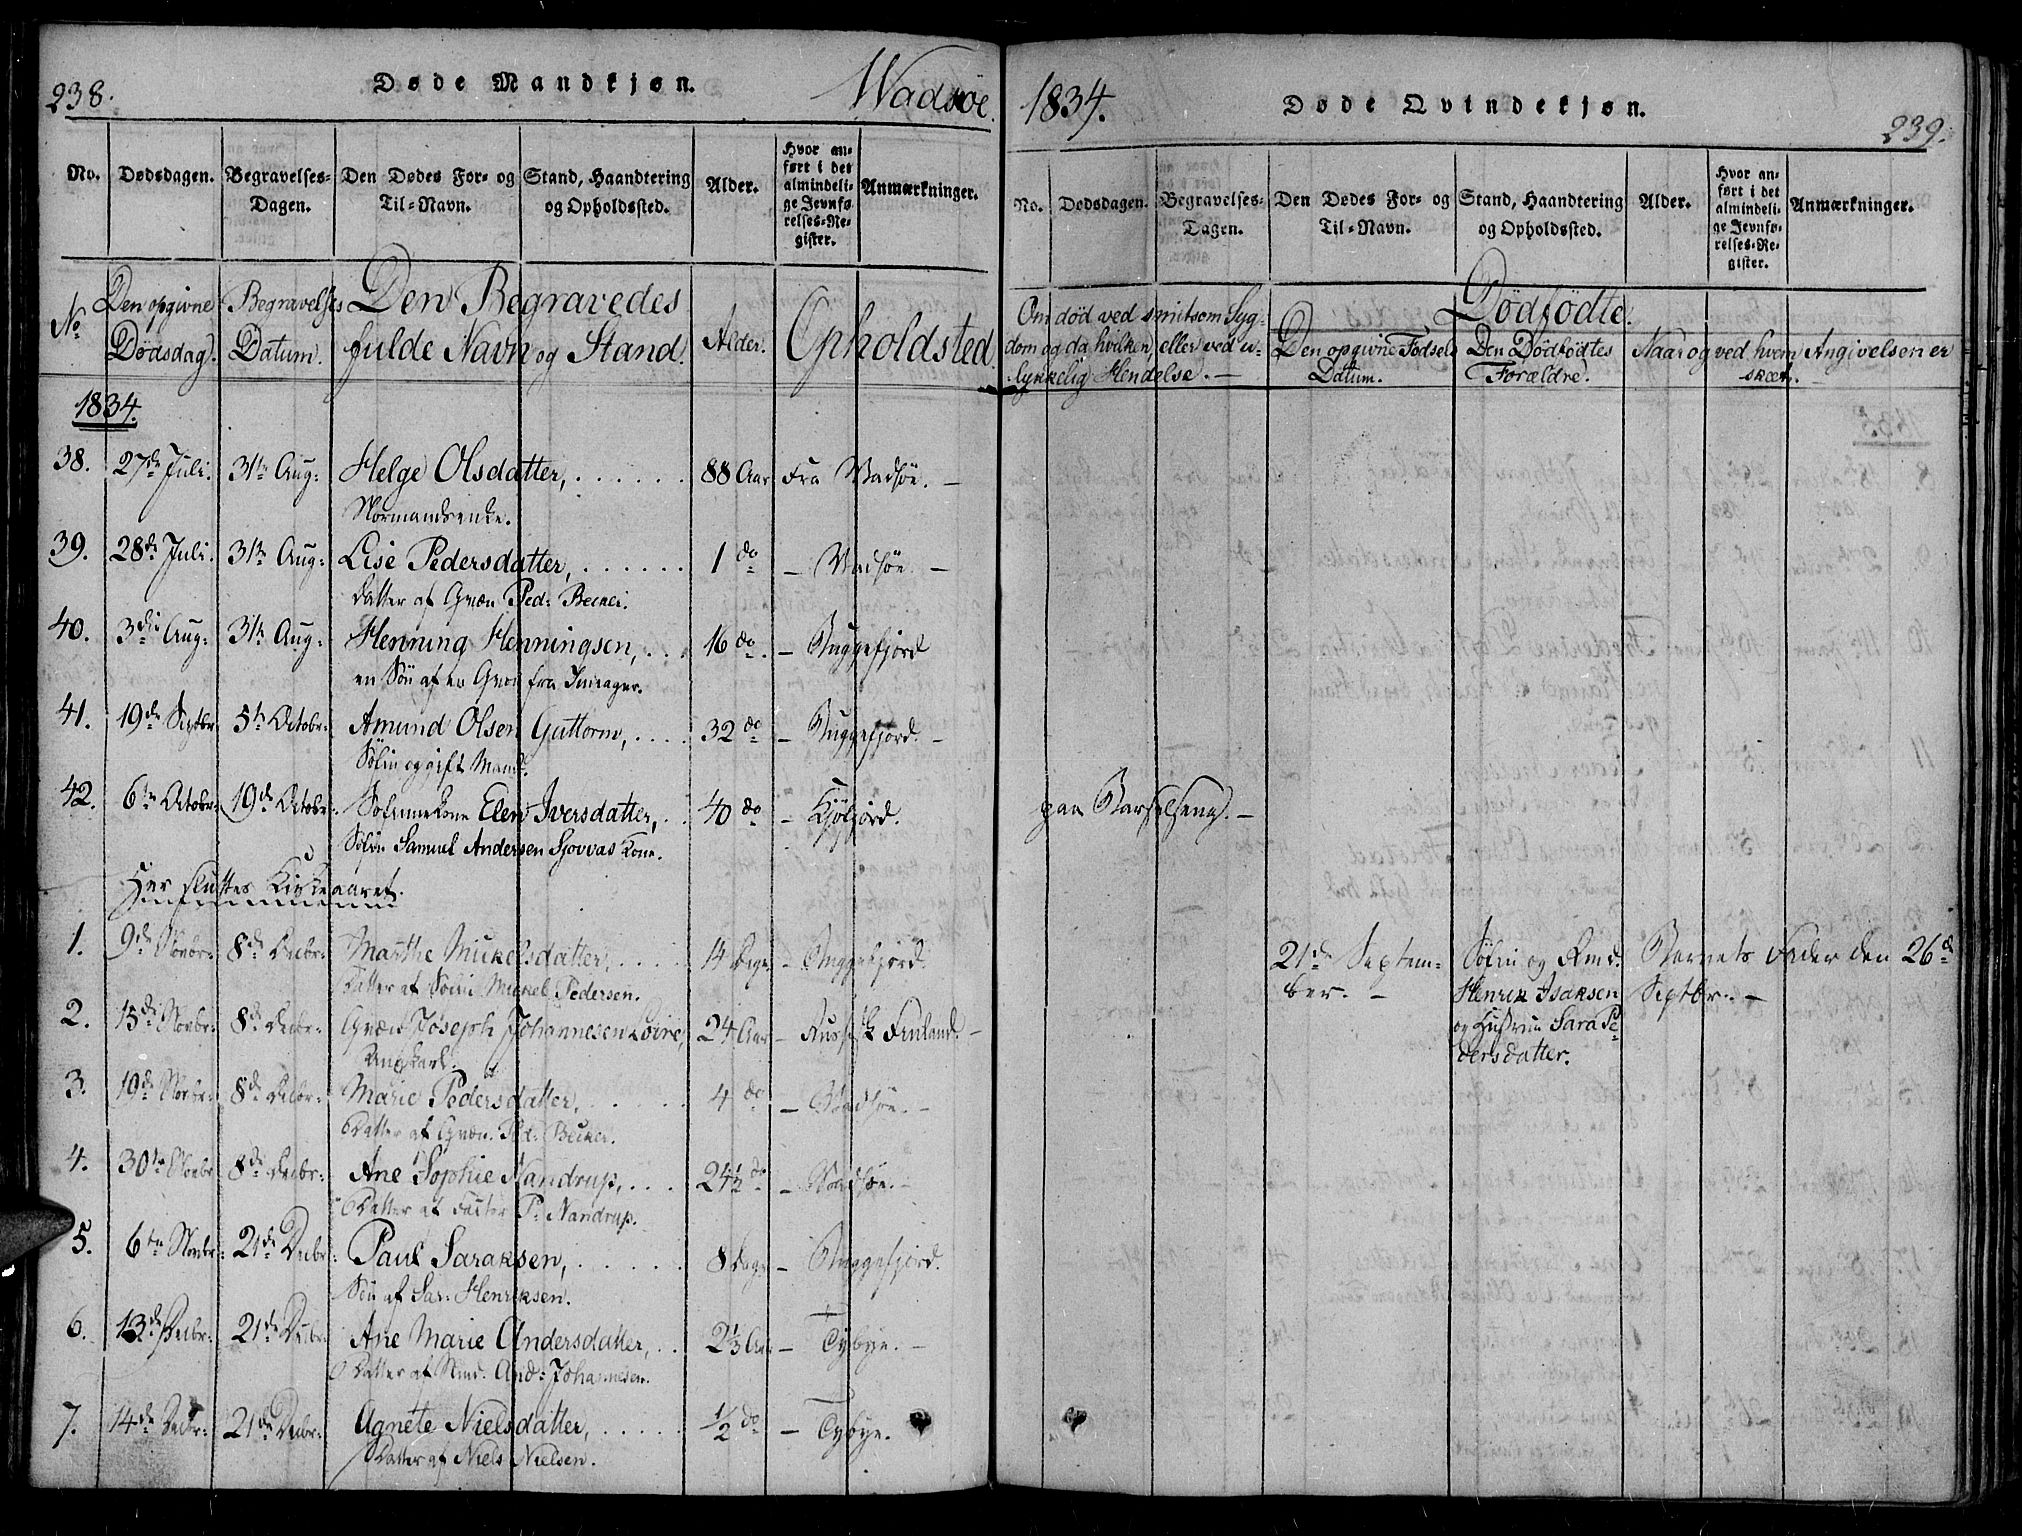 238.
Døde Mandkjøn.
Wadsøe.
No.
Dødsdagen.
Begravelses-
Dagen.
Den Dødes For- og
Til-Navn.
Stand, Haandtering
og Opholdssted.
Alder.
Hvor an-
ført i det
almindeli-
ge Jevnfø-
relses-Re-
gister.
Anmærkninger.
No
Den opgivne
Dødsdag.
Begravelses
Datum.
Den Begravedes
fulde Navn og Stand.
Alder.
Opholdsted
1834.
38. 27de Juli. 31te Aug: Helge Olsdatter, 88 Aar Fra Vadsøe. —
Normandsenke.
39. 28de Juli. 31te Aug: Lise Pedersdatter, 1 do — Vadsøe. —
Datter af Qvæn Ped: Becker.
40. 3die Aug: 31te Aug: Henning Henningsen, 16 do. — Buggefjord
en Søn af en Qvæn fra Eneager.
41. 19de Septbr 5te Octobr: Amund Olsen Guttorm, 32 do — Buggefjord. —
Søfin og gift Mand.
42. 6te Octobr: 19de Octobr: Søfinnekone Elen Iversdatter, 40 do — Kjøfjord. paa Barselseng. —
Søfin Samuel Andersen Sjovvas Kone.
Her sluttes Kirkeaaret.
1. 9de Novbr: 8de Decbr: Marthe Mickelsdatter, 14 Dage — Buggefjord.
Datter af Søfin Mickel Pedersen.
2. 15de Novbr: 8de Decbr: Qvæn Joseph Johannesen Loire, 24 Aar — Russisk Finland. —
Ungkarl.
3. 19de Novbr: 8de Decbr: Marie Pedersdatter, 4 do — Vadsøe. —
Datter af Qvæn. Ped: Becker.
4. 30te Novbr 8de Decbr: Ane Sophie Nandrup, 24½ do — Vadsøe. —
Datter af Factor P. Nandrup.
5. 6te Novbr: 21de Decbr: Paul Saraksen, 8 Dage — Buggefjord.
Søn af Sar: Henriksen.
6. 13de Decbr: 21de Decbr: Ane Marie Andersdatter, 2⅓ Aar — Tybye. —
Datter af Nmd. And: Johannesen.
7. 14de Decbr: 21de Decbr: Agnete Nielsdatter, ½ do — Tybye.
Datter af Niels Nielsen.
1834.
Døde Qvindekjøn.
239.
No.
Dødsdagen.
Begravelses-
Dagen.
Den Dødes For- og
Til-Navn.
Stand, Haandtering
og Opholdssted.
Alder.
Hvor an-
ført i det
almindeli-
ge Jevnfø-
relses-Re-
gister.
Anmærkninger.
Om død ved smitsom Syg-
dom og da hvilken, eller ved u-
lykkelig Hendelse. —
Dødfødte.
Den opgivne Fødsels
Datum.
Den Dødfødtes
Forældre.
Naar og ved hvem Angivelsen er
skeet.
21de Septem-
ber. —
Søfin og Rmd.
Henrik Isaksen
og Hustrue Sara Pe
dersdatter.
Barnets Fader den 26de
Septbr. —